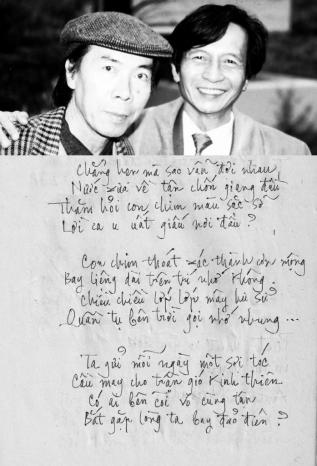 Chẳng hẹn mà sao vẫn đợi nhau,
Nước xưa về tận chốn giang đầu
Thăm hỏi con chim màu sặc sỡ
Lời ca u uất giấu nơi đâu?
Con chim thoát xác thành cơn mộng
Bay liệng dài trên trí nhớ không.
Chiều chiều lớp lớp mây hư sử
Quần tụ bên trời gọi nhớ nhung...
Ta gửi mỗi ngày một sợi tóc
Cầu may cho trận gió kinh thiên
Có ai bên cõi vô cùng tận
Bắt gặp lòng ta bay đảo điên?